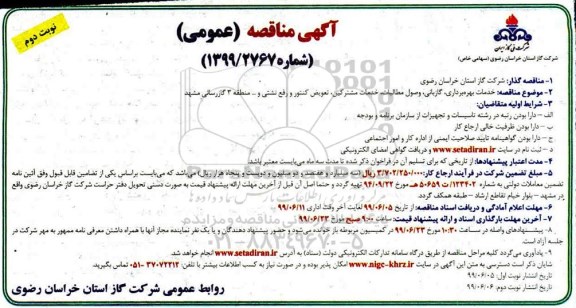 نوبت دوم
آگهی مناقصه (عمومی)
(شماره ۱۳۹۹/۲۷۶۷)
شرکت ملی گاز ایران
شرکت گاز استان خراسان رضوی (سهامی خاص)
۱- مناقصه گذار: شرکت گاز استان خراسان رضوی
۲- موضوع مناقصه: خدمات بهره‌برداری، گازبانی، وصول مطالبات، خدمات مشترکین، تعویض کنتور و رفع نشتی و ... منطقه ۲ گازرسانی مشهد
۳- شرایط اولیه متقاضیان:
الف – دارا بودن رتبه در رشته تاسیسات و تجهیزات از سازمان برنامه و بودجه
ب – دارا بودن ظرفیت خالی ارجاع کار
ج – دارا بودن گواهینامه تایید صلاحیت ایمنی از اداره کار و امور اجتماعی
د – ثبت نام در سایت www.setadiran.ir و دریافت گواهی امضای الکترونیکی
۴- مدت اعتبار پیشنهادها: از تاریخی که برای تسلیم آن در فراخوان ذکر شده تا مدت سه ماه می‌بایست معتبر باشد.
۵- مبلغ تضمین شرکت در فرآیند ارجاع کار: ۳/۷۰۲/۲۵۰/۰۰۰ ریال می‌باشد که می‌بایست براساس یکی از تضامین قابل قبول وفق آئین نامه
تضمین معاملات دولتی به شماره ۱۲۳۴۰۲/ت ۵۰۶۵۹ هـ مورخ ۹۴/۰۹/۲۲ تهیه گردد و حتما اصل آن قبل از آخرین مهلت ارائه پیشنهاد قیمت به صورت دستی تحویل دفتر حراست شرکت گاز استان خراسان رضوی واقع
در مشهد – بلوار خیام تقاطع ارشاد – طبقه همکف گردد.
۶- مهلت اعلام آمادگی و دریافت اسناد مناقصه: از تاریخ ۹۹/۰۶/۰۵ لغایت آخر وقت اداری ۹۹/۰۶/۱۱
۷- آخرین مهلت بارگذاری اسناد و ارائه پیشنهاد قیمت: ساعت ۹:۰۰ صبح مورخ ۹۹/۰۶/۲۳
۸- پیشنهادهای واصله در مورخ ۹۹/۰۶/۲۳ در کمیسیون مربوطه بازخوانی خوانده می‌شود و حضور پیشنهاد دهندگان و یا یک نفر نماینده مجاز آنها با همراه داشتن معرفی نامه ممهور به مهر شرکت در
جلسه آزاد است.
۹- یادآوری می‌گردد کلیه مراحل مناقصه از طریق درگاه سامانه تدارکات الکترونیکی دولت (ستاد) به آدرس www.setadiran.ir انجام خواهد شد.
شایان ذکر است دسترسی به متن این آگهی در سایت www.nigc-khrz.ir امکان پذیر بوده و در صورت نیاز به کسب اطلاعات بیشتر با تلفن: ۳۷۰۷۲۲۱۲ -۰۵۱ تماس بگیرید.
تاریخ انتشار نوبت اول: ۹۹/۰۶/۰۵
تاریخ انتشار نوبت دوم: ۹۹/۰۶/۰۶
روابط عمومی شرکت گاز استان خراسان رضوی
۰۲۱-۸۸۳۴۹۶۷۰-۵